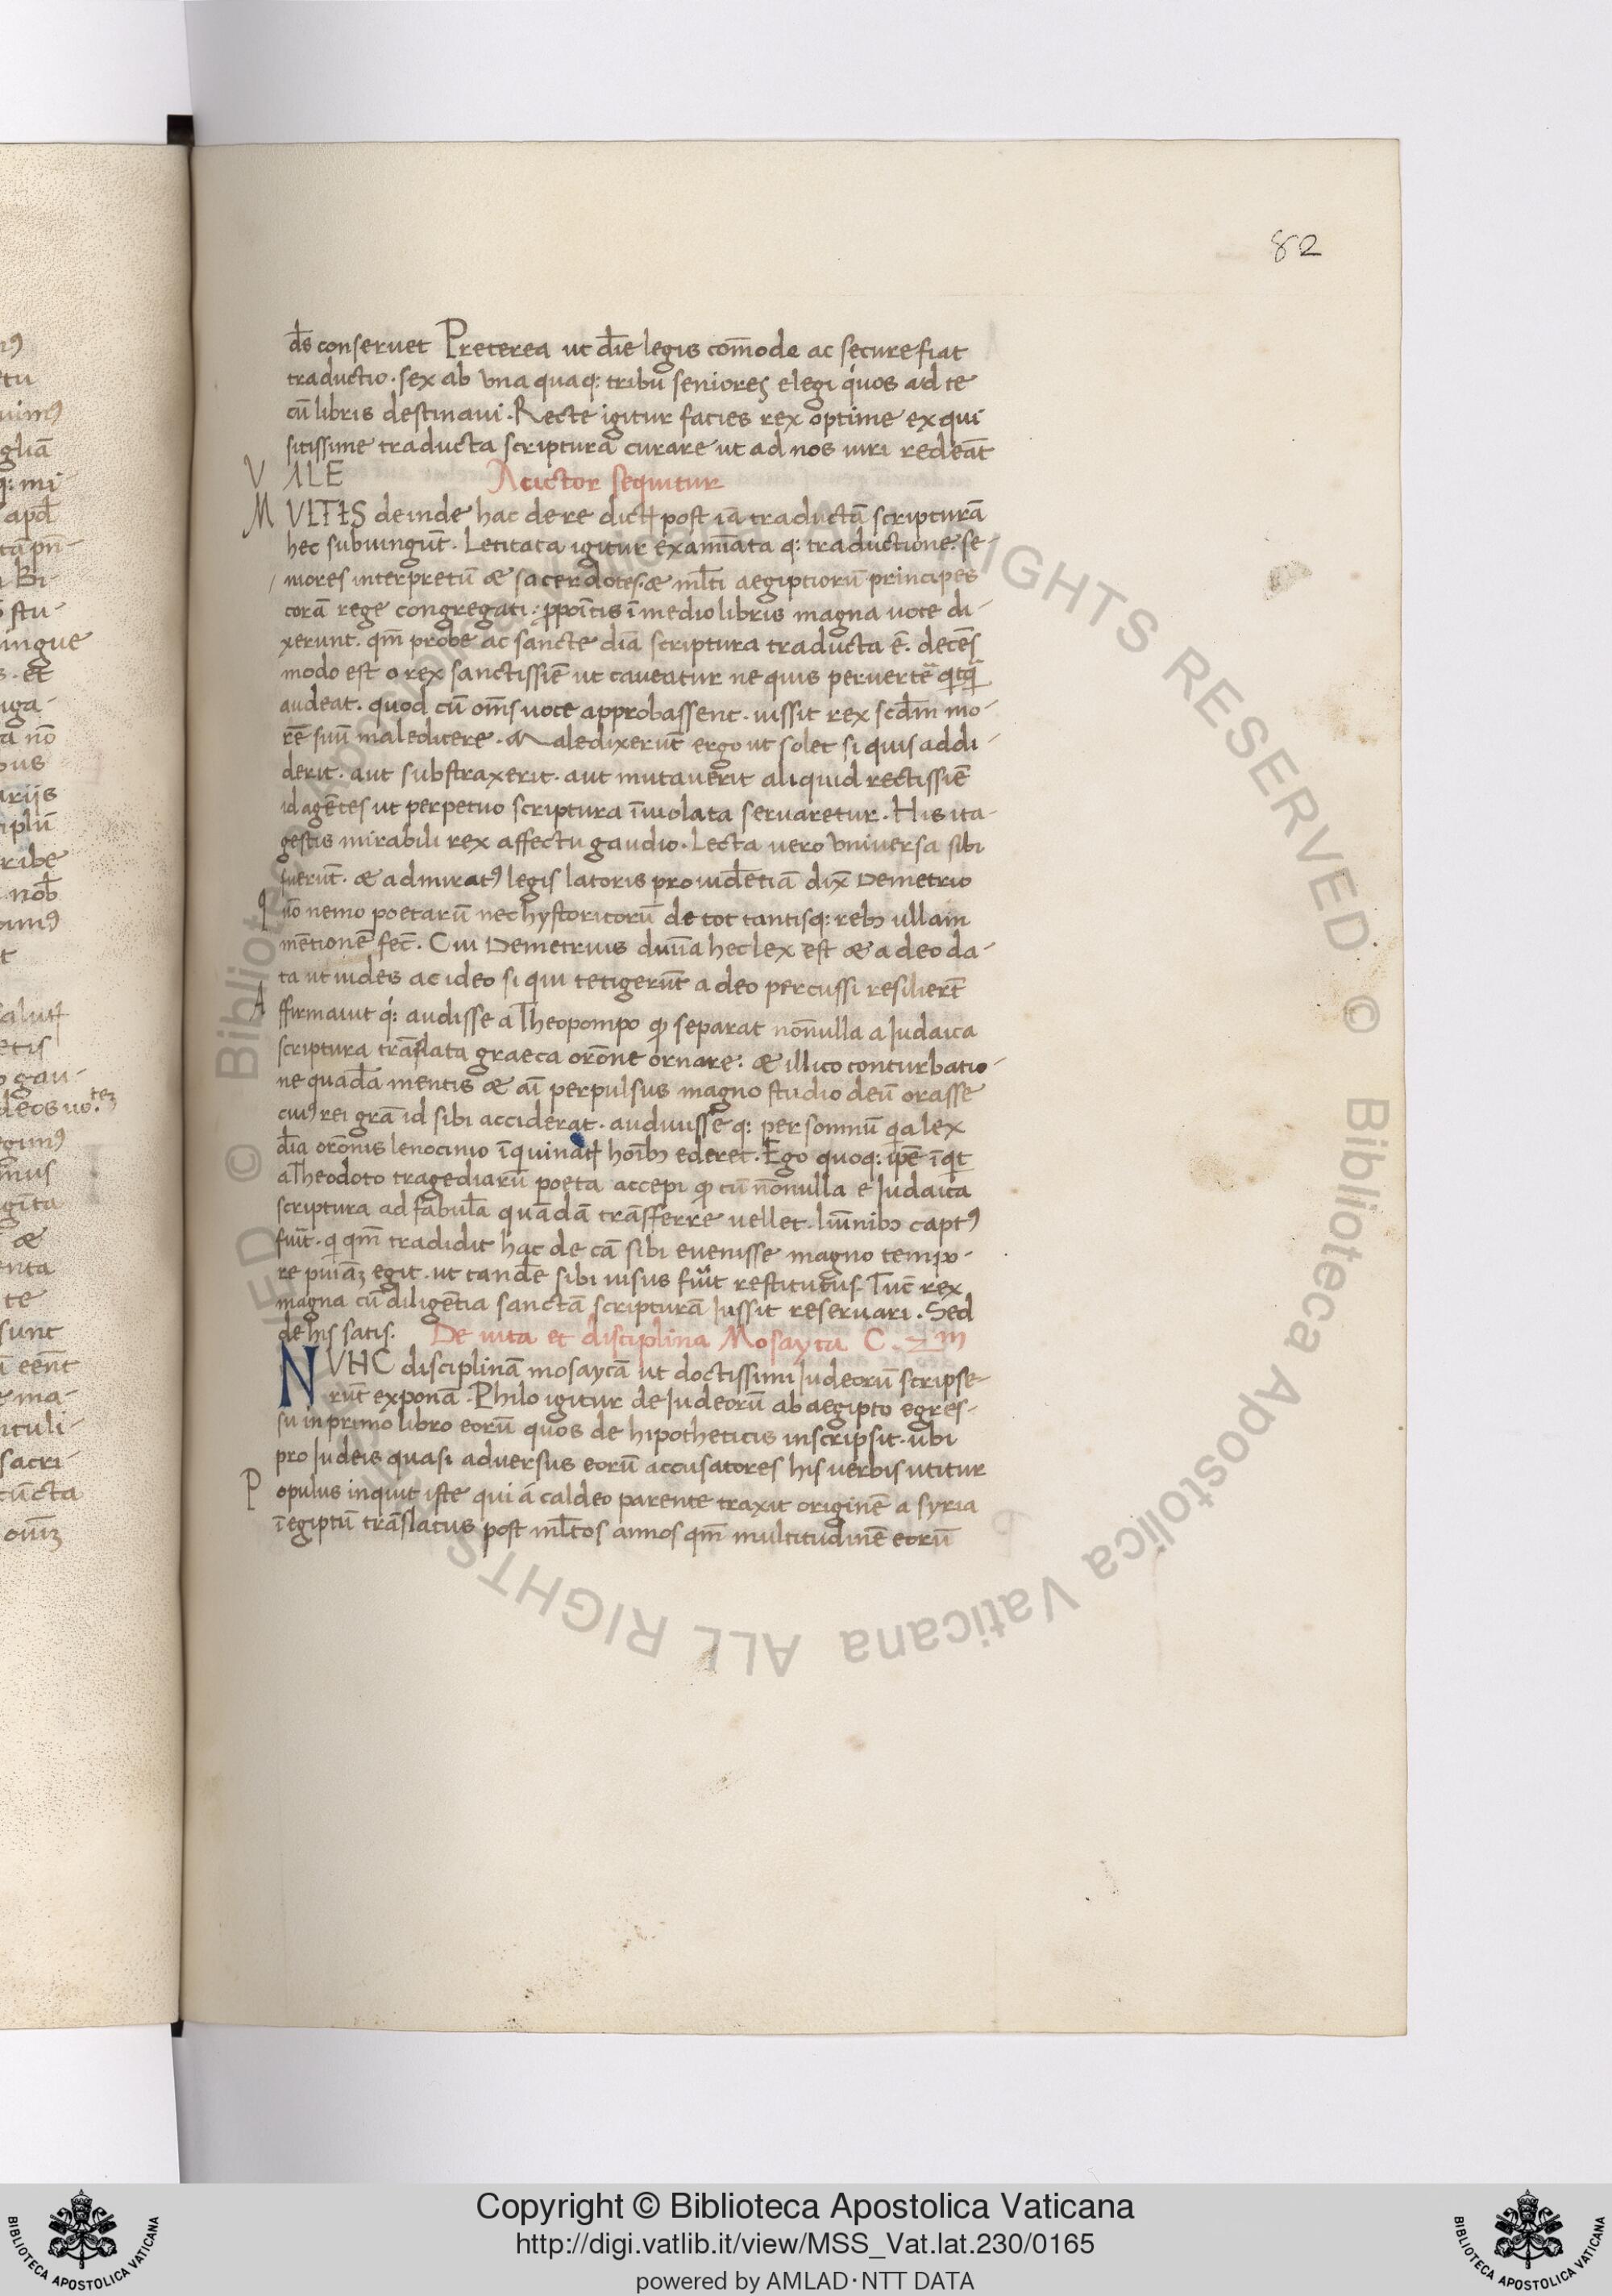 82
d̅s conseruet Preterea ut d̅ie legis com̅ode ac secure fiat
traductio · sex ab vna quaq: tribu seniores elegi quos ad te
cu̅ libris destinaui · Recte igitur facies rex optime exqui
sitissime traducta scriptura curare ut ad nos uiri redea̅t
VALE Auctor sequitur
MVLTIS deinde hac de re dict̅ post ia̅ traducta̅ scriptura̅
hec subiungu̅t · Lectitata igitur examia̅ta q: traductione: se-
niores interpretu̅ æ sacerdotes · æ ml̅ti aegiptioru̅ principes
cora̅ rege congregati : ppoi̅tis i̅ medio libris magna uoce di-
xerunt · qm̅ probe ac sancte dia̅ scriptura traducta e̅ · dece̅s
modo est o rex sanctissie̅ ut caueatur ne quis peruerte̅
audeat · quod cu̅ om̅s uoce approbassent · iussit rex scd̅m mo-
re̅ suu̅ maledicere · Maledixeru̅t ergo ut solet si quis addi-
derit · aut substraxerit · aut mutauerit aliquid rectissie̅
id age̅tes ut perpetuo scriptura i̅uiolata seruaretur · His ita-
gestis mirabili rex affectu gaudio · Lecta uero vniuersa sibi
fueru̅t · æ admirat9 legis latoris prouid̅etia̅ dix̅ Demetrio
quo̅ nemo poetaru̅ nec hystoricoru̅ de tot tantisq: rebɔ ullam
me̅tione̅ fec̅ · Cui Demetrius diui̅a hec lex est æ a deo da-
ta ut uides ac ideo si qui tetigeru̅t a deo percussi resilier̅t
Affirmauit q: audisse a Theopompo ꝙ separat no̅nulla a Iudaica
scriptura tra̅slata graeca oro̅ne ornare : æ illico conturbatio-
ne quada̅ mentis æ ai̅ perpulsus magno studio deu̅ orasse
cui9 rei gra̅ id sibi acciderat · audiuisse q: per somnu̅ qa lex
d̅ia oro̅nis lenocinio i̅quinat̅ hoi̅bɔ ederet · Ego quoq: ipe̅ i̅qt
a Theodoto tragediaru̅ poeta accepi ꝙ cu̅ no̅nulla e Iudaica
scriptura ad fabula̅ qua̅da̅ tra̅sferre uellet · lu̅nibɔ capt9
fuit · q qm̅ tradidit hac de ca̅ sibi euenisse magno tempo-
re pnia̅ʒ egit · ut tande̅ sibi uisus fuit restitutus · Tuc̅ rex
magna cu̅ dilige̅tia sancta̅ scriptura̅ Iussit reseruari · Sed
de his satis · De uita et disciplina Mosayca C.
NVHC disciplina̅ mosayca̅ ut doctissimi Iudeoru̅ scripse-
ru̅t expona̅ · Philo igitur de Iudeoru̅ ab aegipto egres-
su in primo libro eoru̅ quos de hipotheticis inscripsit · ubi
pro Iudeis quasi aduersus eoru̅ accusatores his uerbis utitur
Populus inquit iste qui a caldeo parente traxit origine̅ a syria
i̅ egiptu̅ tra̅slatus post ml̅tos annos qm̅ multitudine̅ eoru̅
Copyright © Biblioteca Apostolica Vaticana
http://digi.vatlib.it/view/MSS_Vat.lat.230/0165
powered by AMLAD·NTT DATA
BIBLIOTECA APOSTOLICA VATICANA
BIBLIOTECA APOSTOLICA VATICANA
© Biblioteca Apostolica Vaticana ALL RIGHTS RESERVED © Biblioteca Apostolica Vaticana ALL RIGHTS RESERVED